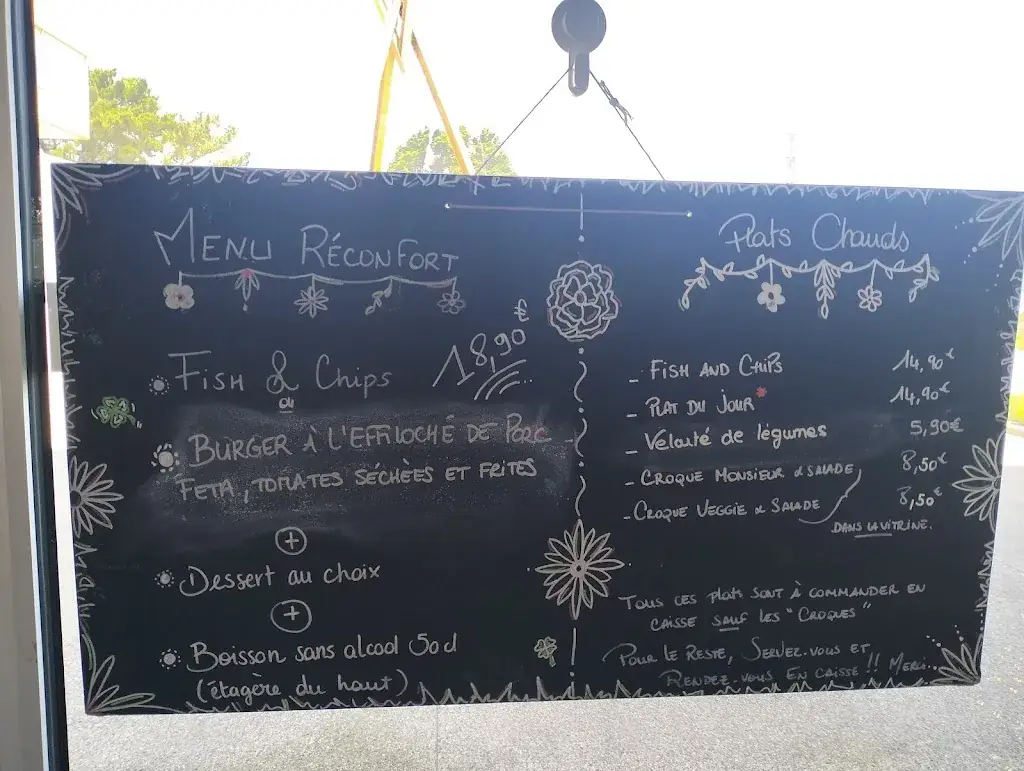 MENU RÉCONFORT
FISH & Chips 18,90€
ou
BURGER À L'EFFILOCHÉ DE PORC
FETA, TOMATES SÉCHÉES ET FRITES
+
Dessert au choix
+
Boisson sans alcool 50cl
(étagère du haut)
Plats Chauds
- FISH AND CHIPS 14,90€
- PLAT DU JOUR* 14,90€
- Velouté de légumes 5,90€
- CROQUE MONSIEUR & SALADE 8,50€
- CROQUE VEGGIE & SALADE 8,50€
DANS LA VITRINE.
TOUS CES plats SONT À COMMANDER EN
CAISSE SAUF LES "CROQUES"
POUR LE RESTE, SERVEZ-VOUS ET
RENDEZ-VOUS EN CAISSE!! MERCI